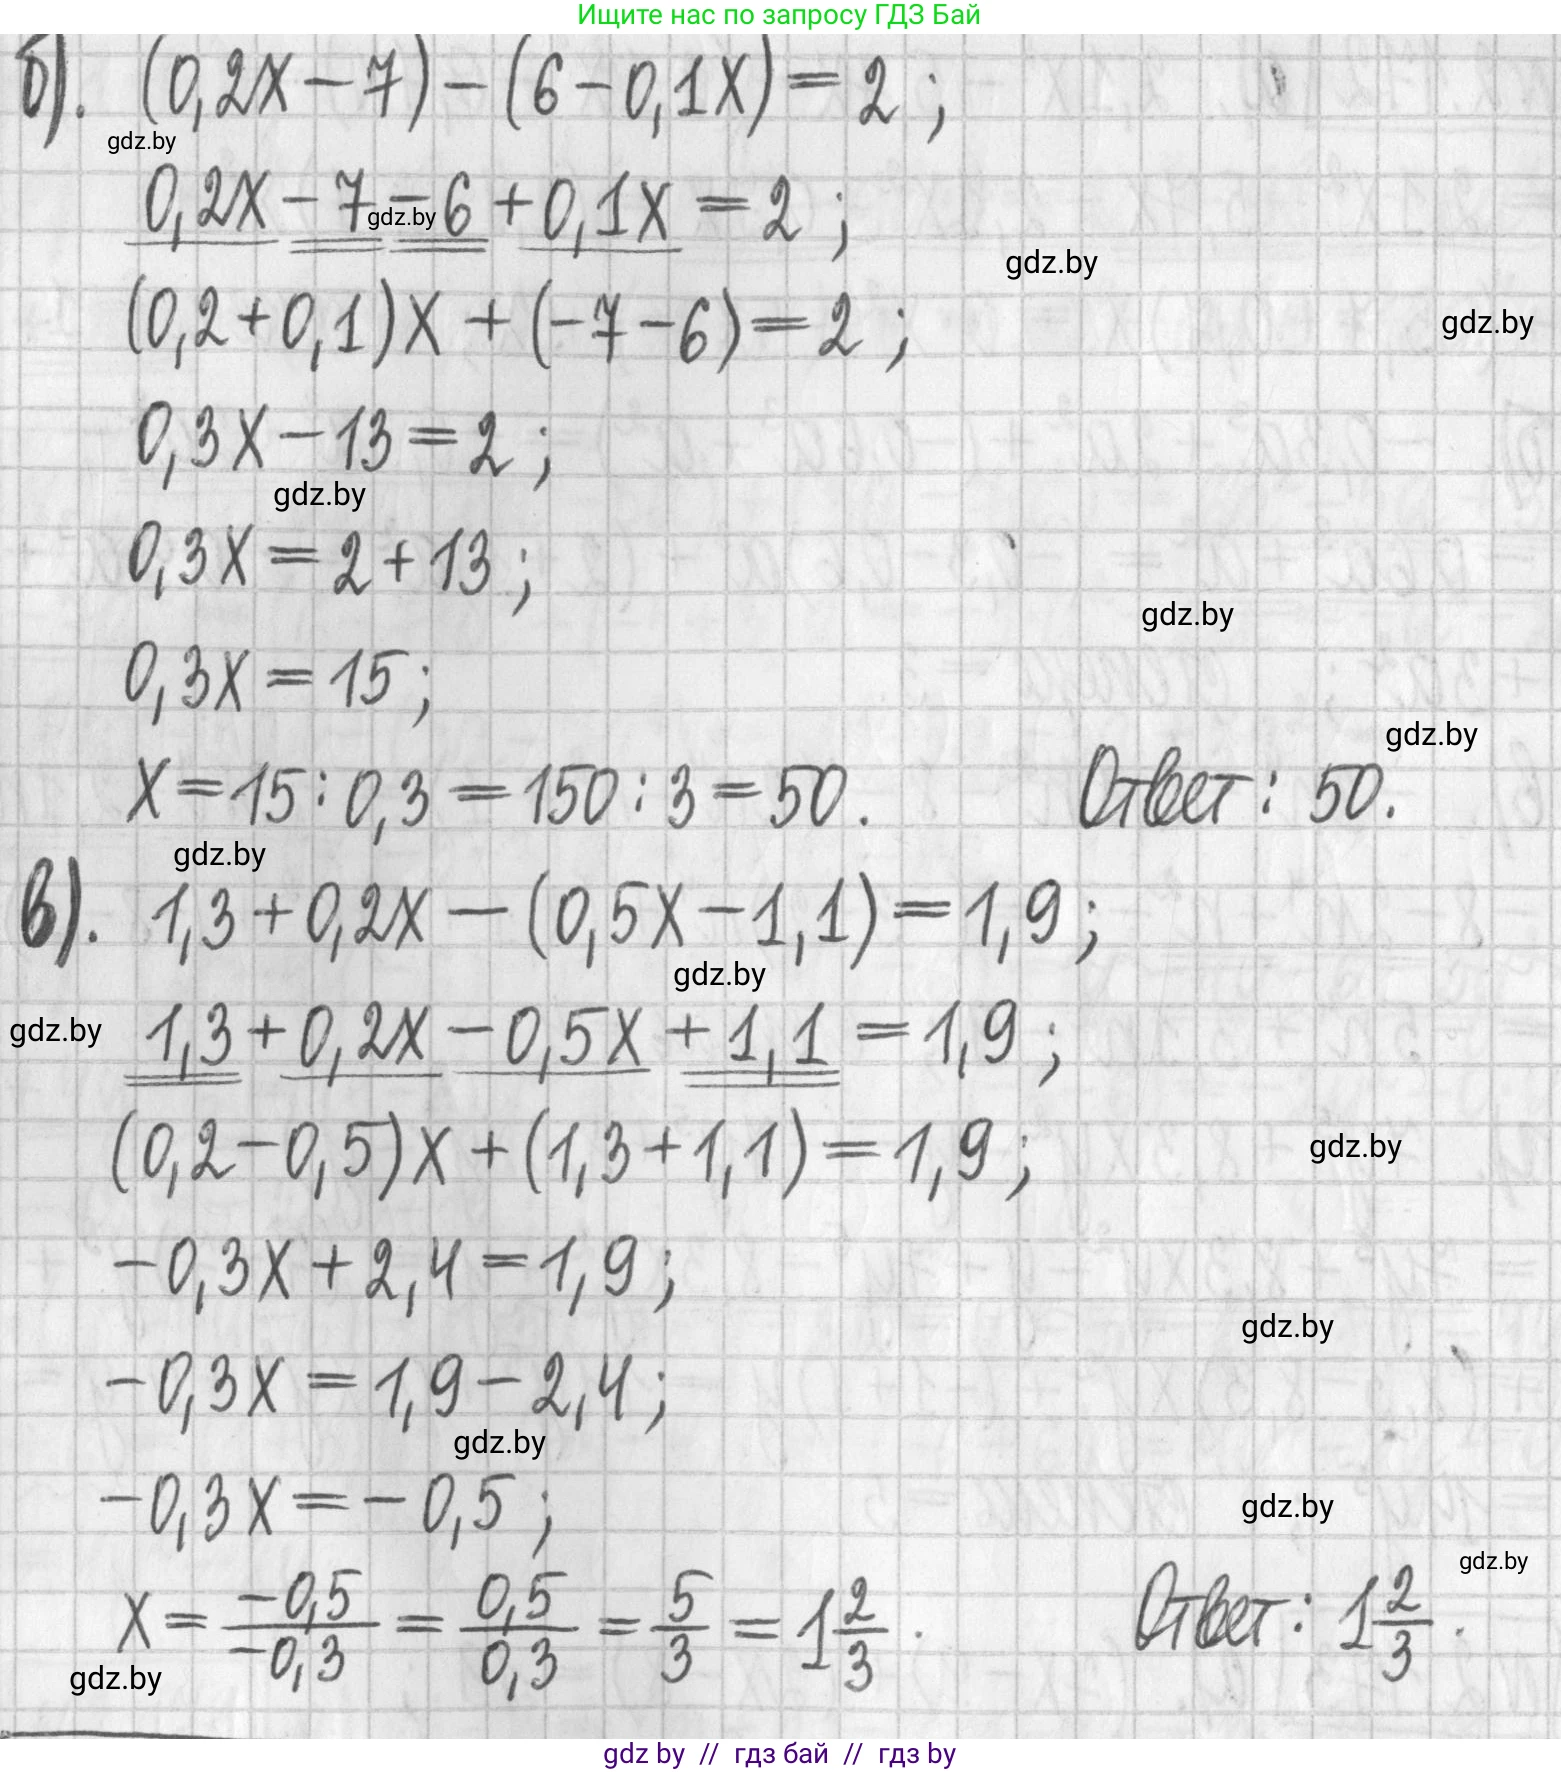 Ищите нас по запросу ГДЗ Бай
б). (0,2x − 7) − (6 − 0,1x) = 2 ;
gdz.by
0,2x − 7 − 6 + 0,1x = 2 ;
gdz.by
gdz.by
(0,2 + 0,1)x + (−7 − 6) = 2 ;
gdz.by
0,3x − 13 = 2 ;
gdz.by
0,3x = 2 + 13 ;
gdz.by
0,3x = 15 ;
gdz.by
x = 15 : 0,3 = 150 : 3 = 50. Ответ : 50.
gdz.by
в). 1,3 + 0,2x − (0,5x − 1,1) = 1,9 ;
gdz.by
gdz.by
1,3 + 0,2x − 0,5x + 1,1 = 1,9 ;
(0,2 − 0,5)x + (1,3 + 1,1) = 1,9 ;
gdz.by
−0,3x + 2,4 = 1,9 ;
gdz.by
−0,3x = 1,9 − 2,4 ;
gdz.by
−0,3x = −0,5 ;
gdz.by
gdz.by
x = −0,5/−0,3 = 0,5/0,3 = 5/3 = 1 2/3 . Ответ : 1 2/3 .
gdz.by
gdz by // гдз бай // гдз by